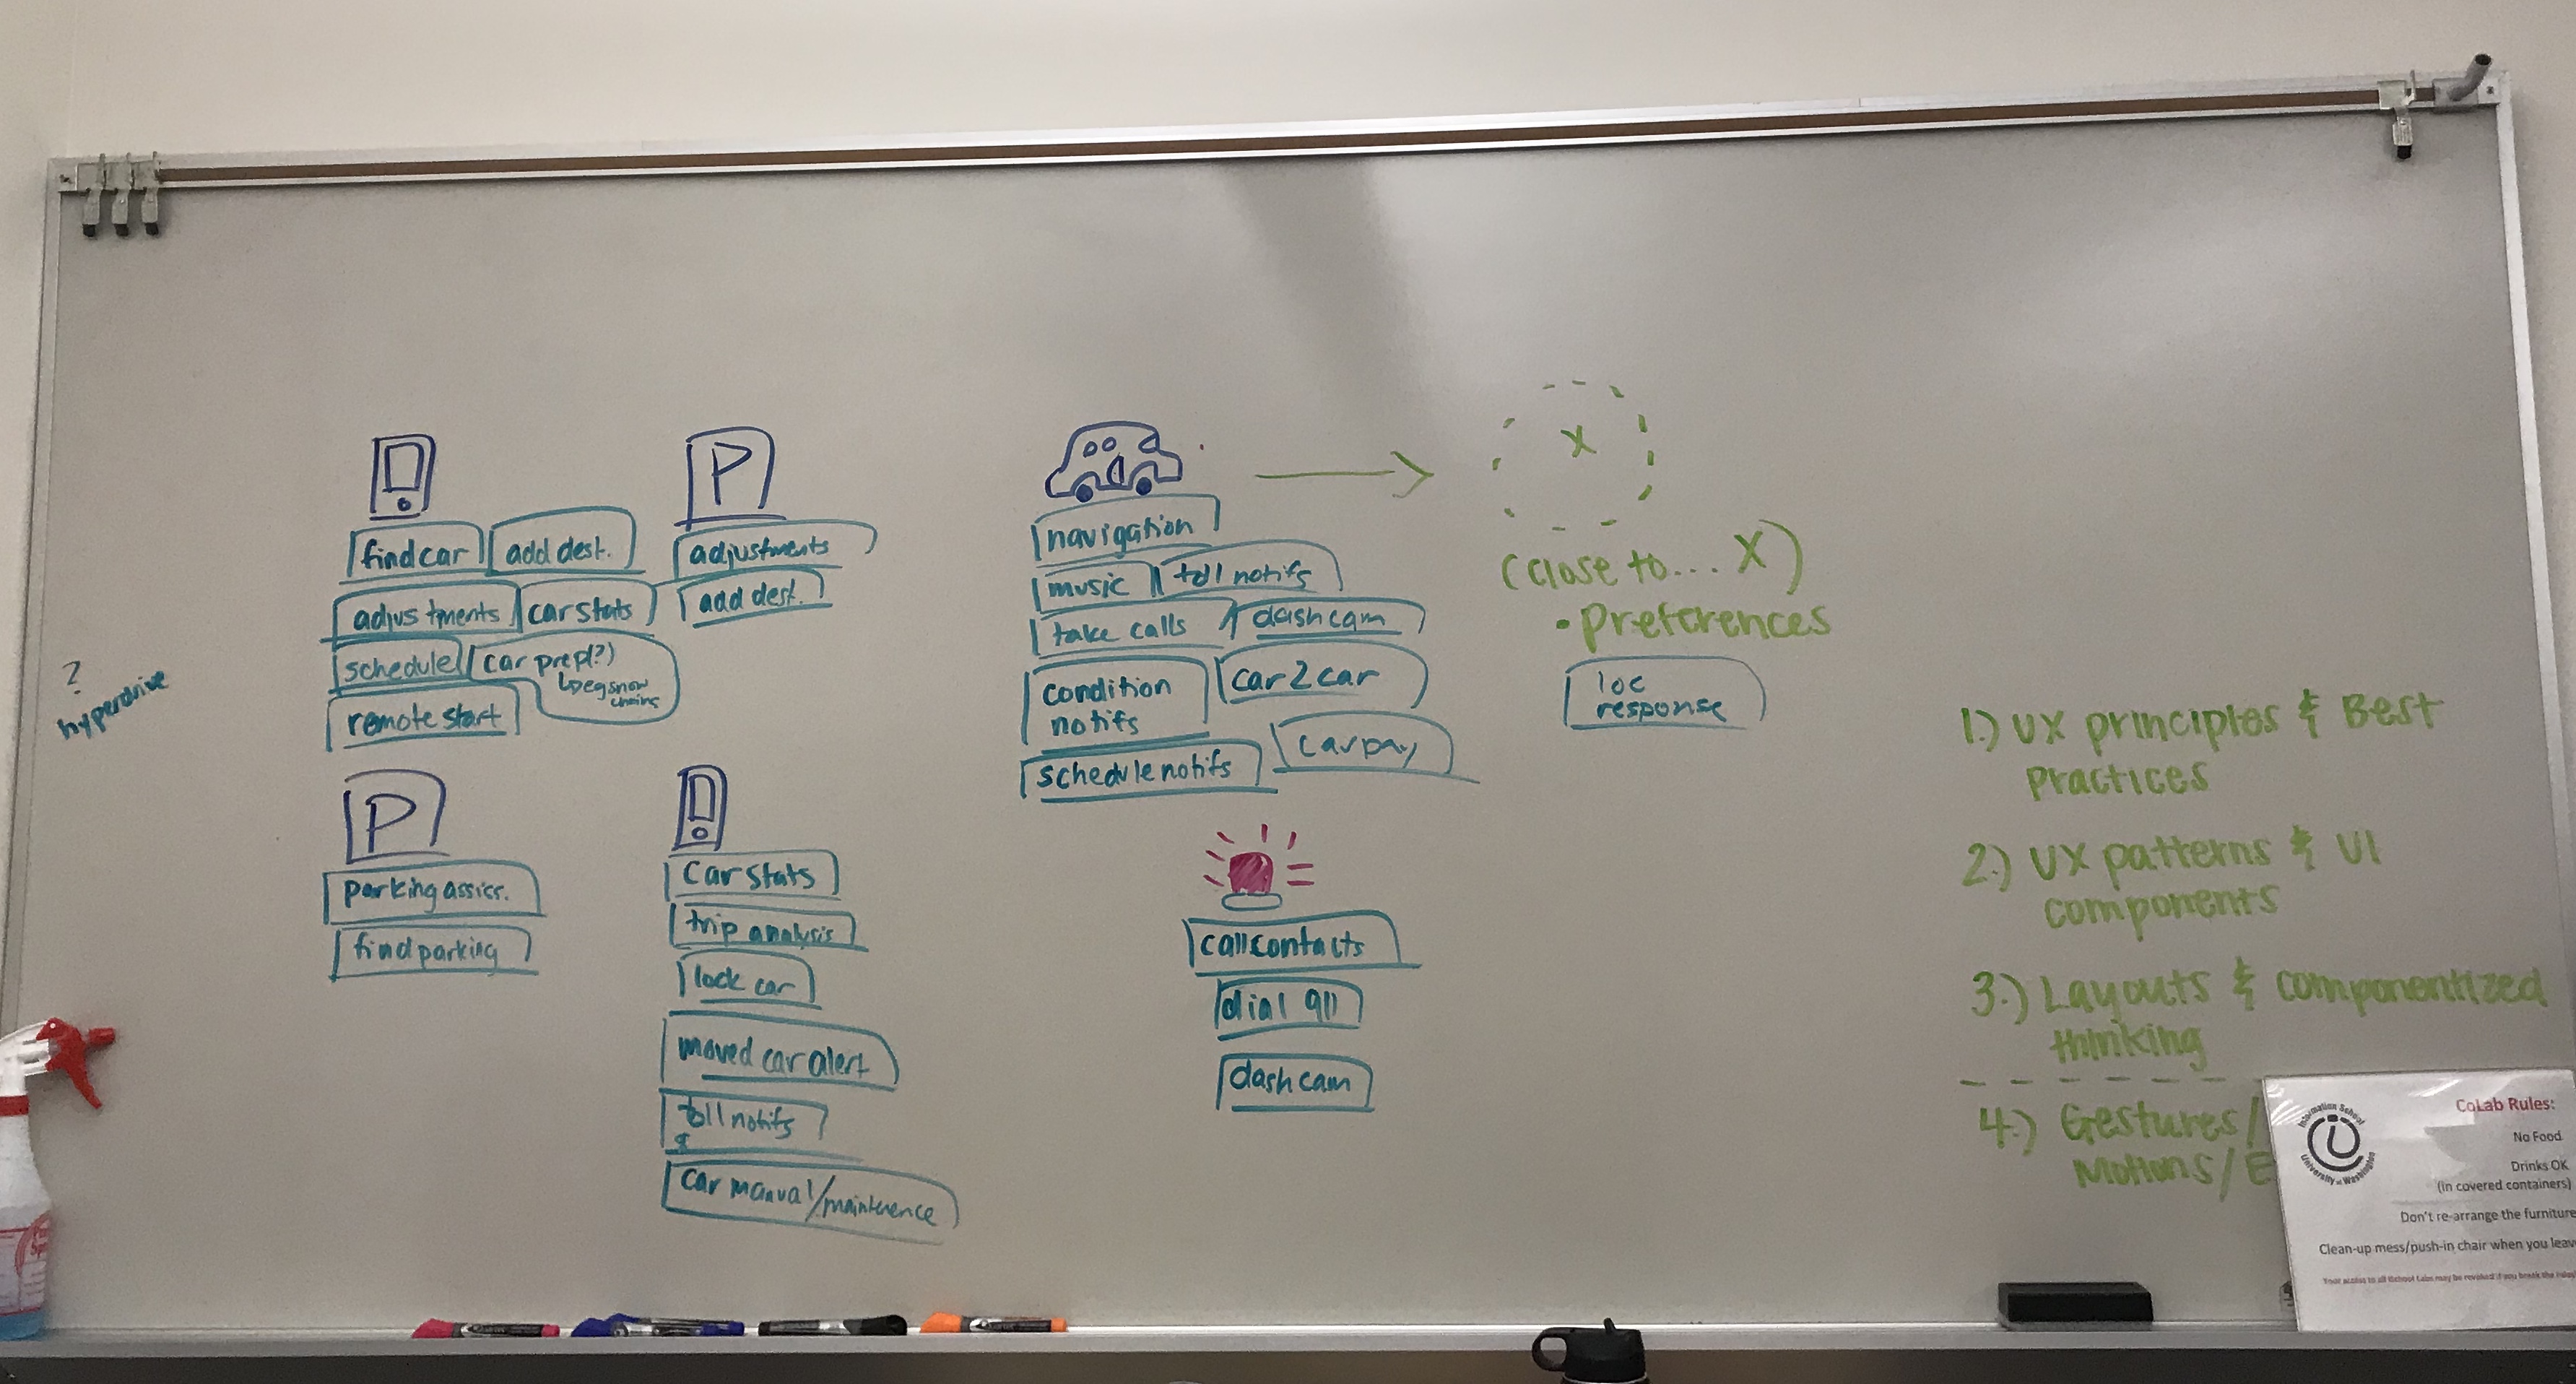 ?
hyperdrive
find car
add dest.
adjustments
car stats
schedule
car prep(?)
snow
chains
remote start
P
adjustments
add dest.
P
parking assis.
find parking
car stats
trip analysis
lock car
moved car alert
toll notifs
car manual/maintenence
navigation
music
toll notifs
take calls
dashcam
condition
notifs
car2car
schedule notifs
carpay
call contacts
dial 911
dash cam
X
(close to... X)
• preferences
loc
response
1.) UX principles & Best
practices
2.) UX patterns & UI
components
3.) Layouts & componentized
thinking
4.) Gestures/
Motions/E
Information School
University of Washington
CoLab Rules:
No Food
Drinks OK
(in covered containers)
Don't re-arrange the furniture
Clean-up mess/push-in chair when you leav